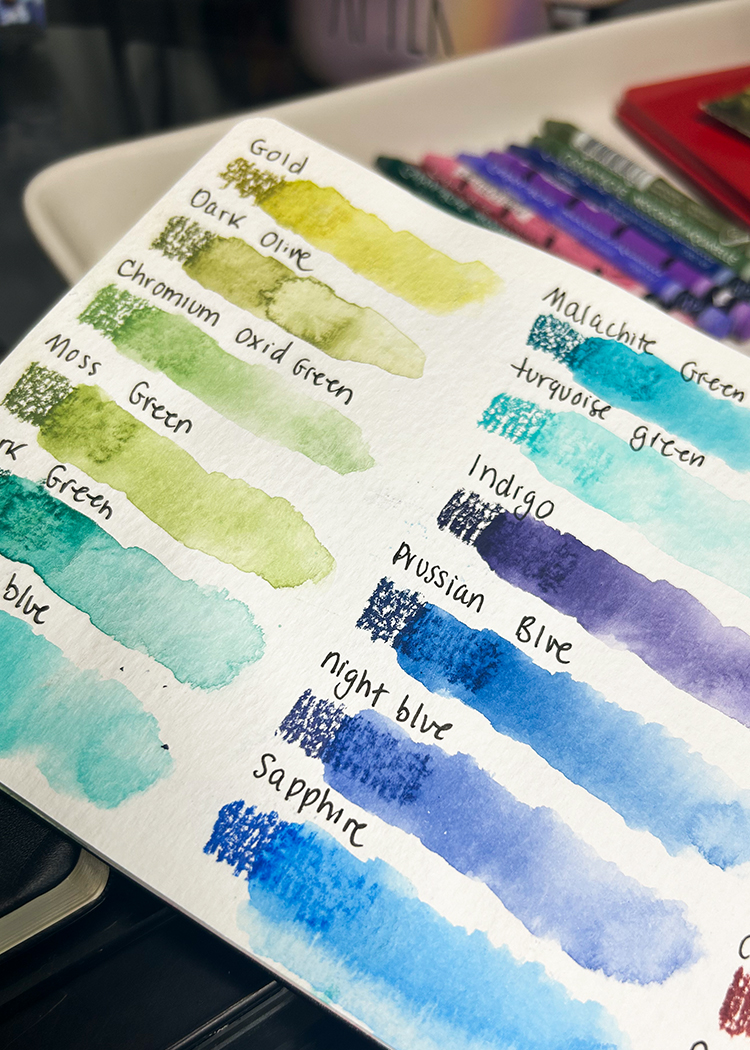 AFTER
Gold
Dark Olive
Chromium oxid Green
Moss Green
rk Green
blue
Malachite Green
turquoise green
Indigo
Prussian Blue
night blue
Sapphire